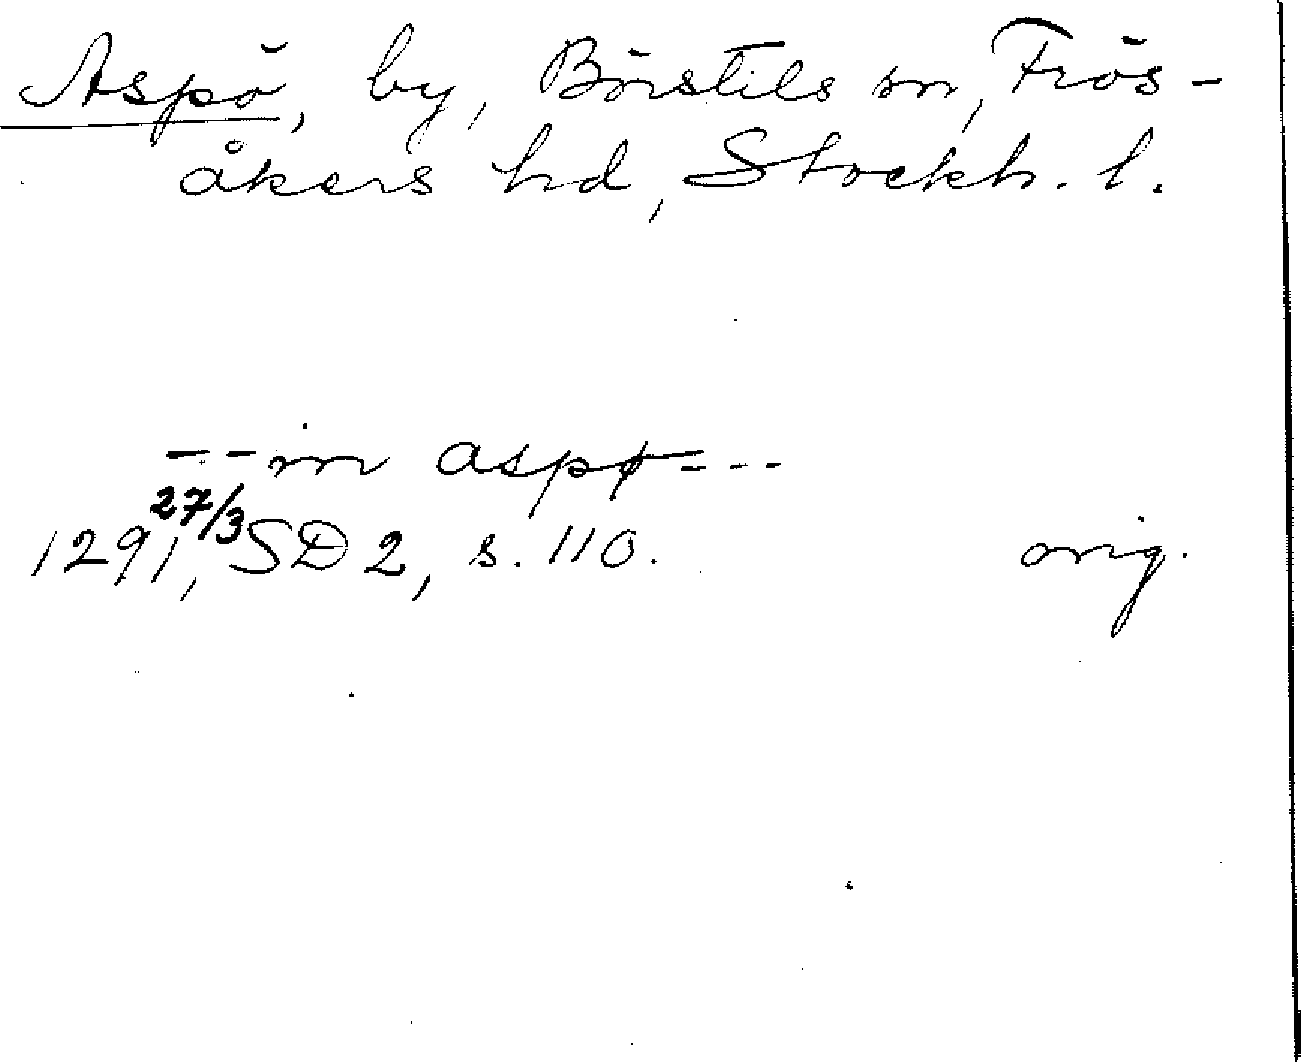 Aspö, by, Börstils sn, Frös-
åkers hd, Stockh. l.
- - in aspø - - -
1291, 27/3 SD 2, s. 110. orig.